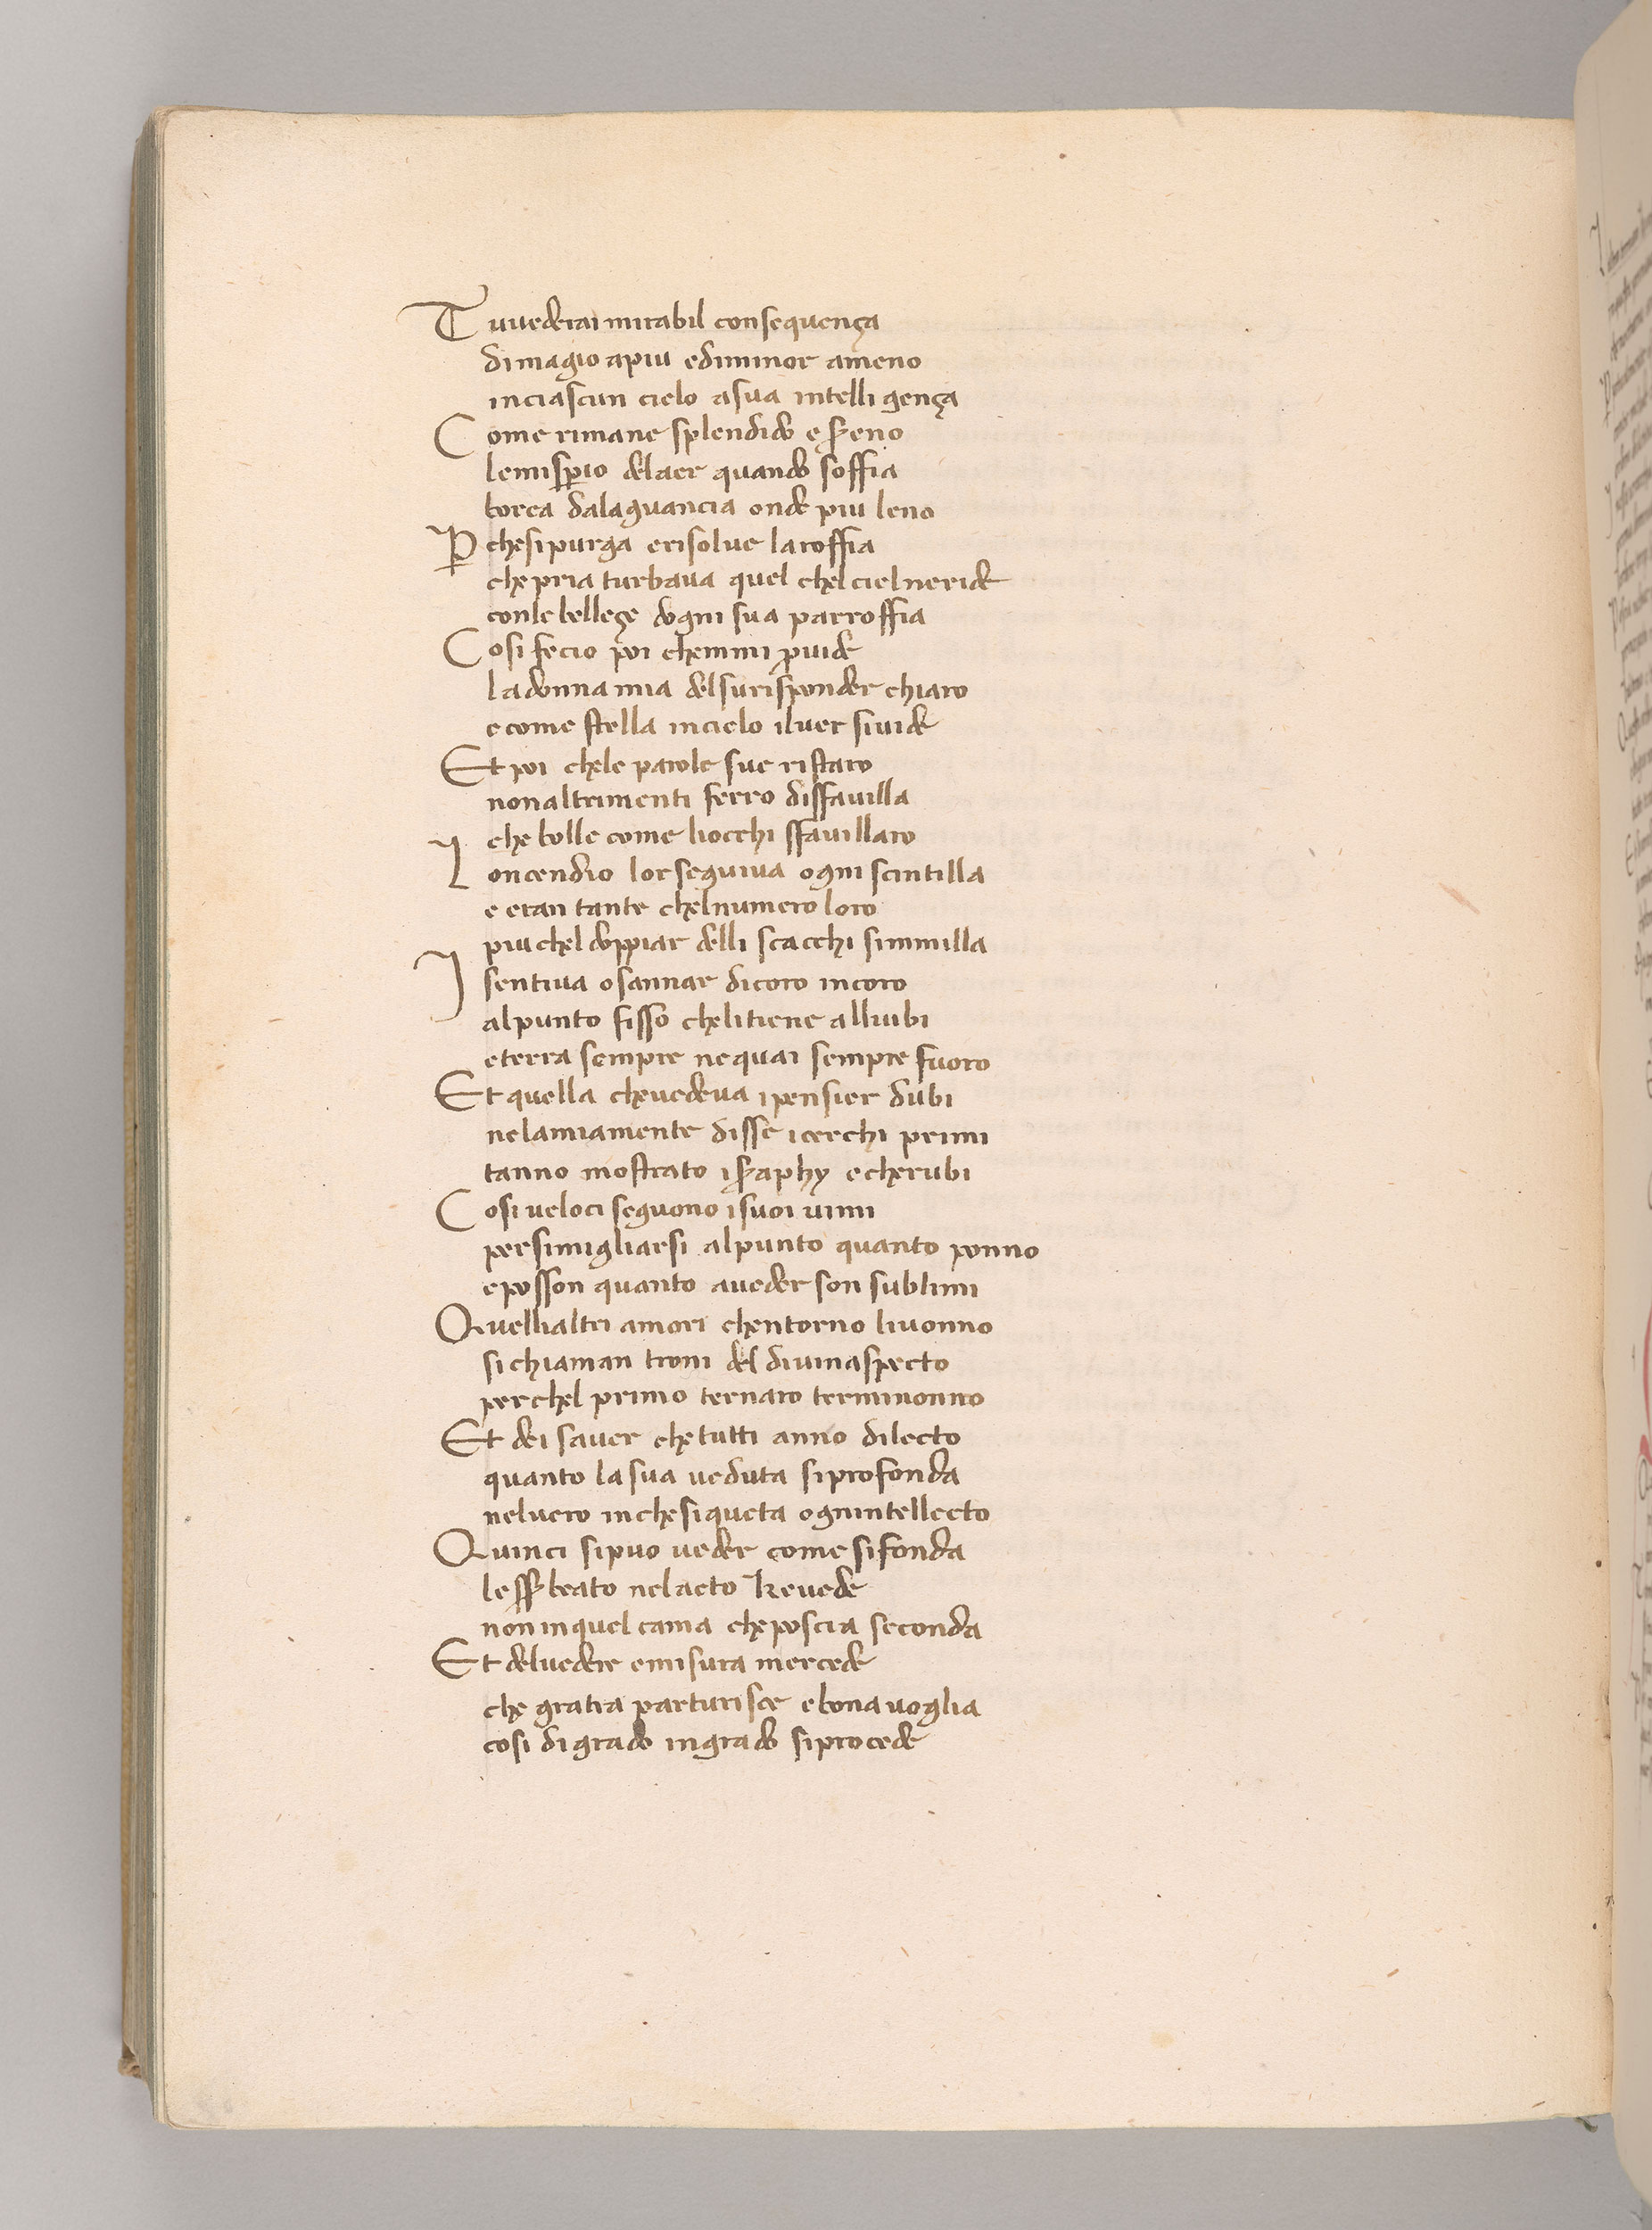 Tu uederai mirabil consequença
di magio a piu e di minor a meno
in ciascun cielo a sua intelligença
Come rimane splendido e sereno
lemisperio delaer quando soffia
borea dala guancia onde piu leno
P che si purga e risolue la roffia
che pria turbaua quel chel ciel ne ride
con le belleçe dogni sua parroffia
Cosi fecio poi chemmi prouide
la donna mia del su risponder chiaro
e come stella in cielo il uer si uide
Et poi che le parole sue ristaro
non altrimenti ferro disfauilla
che bolle come liocchi sfauillaro
Loncendio lor seguiua ogni scintilla
e eran tante chel numero loro
piu chel doppiar delli scacchi simmilla
I sentiua osannar di coro in coro
al punto fisso che li tiene alliubi
e terra sempre ne quai sempre fuoro
Et quella che uedeua i pensier dubi
nela mia mente disse i cerchi primi
tanno mostrato i seraphy e cherubi
Cosi ueloci seguono i suoi uimi
per simigliarsi al punto quanto ponno
e posson quanto a ueder son sublimi
Quelli altri amori chentorno li uonno
si chiaman troni del diuin aspecto
per chel primo ternaro terminonno
Et dei sauer che tutti anno dilecto
quanto la sua ueduta si profonda
nel uero in che si queta ognintellecto
Quinci si puo ueder come si fonda
lesser beato nel acto ke uede
non in quel cama che poscia seconda
Et del uedere e misura mercede
che gratia parturisce e bona uoglia
cosi di grado in grado si procede